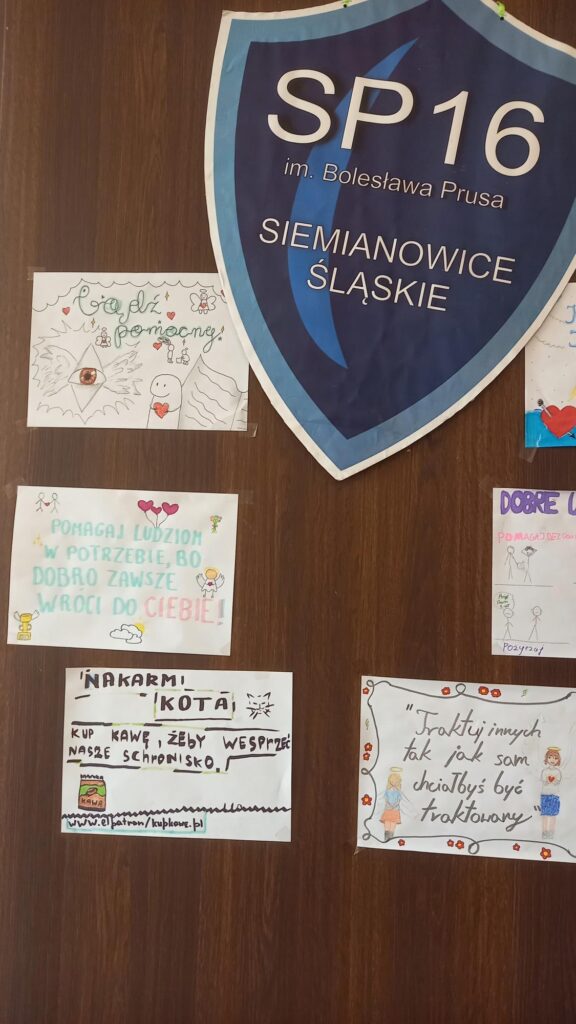 SP16
im. Bolesława Prusa
SIEMIANOWICE
ŚLĄSKIE
Bądź
pomocny
POMAGAJ LUDZIOM
W POTRZEBIE, BO
DOBRO ZAWSZE
WRÓCI DO CIEBIE!
DOBRE
NAKARMI
KOTA
KUP KAWĘ, ŻEBY WESPRZEĆ
NASZE SCHRONISKO.
KAWA
www.elpatron/kupkawe.pl
"Traktuj innych
tak jak sam
chciałbyś być
traktowany"